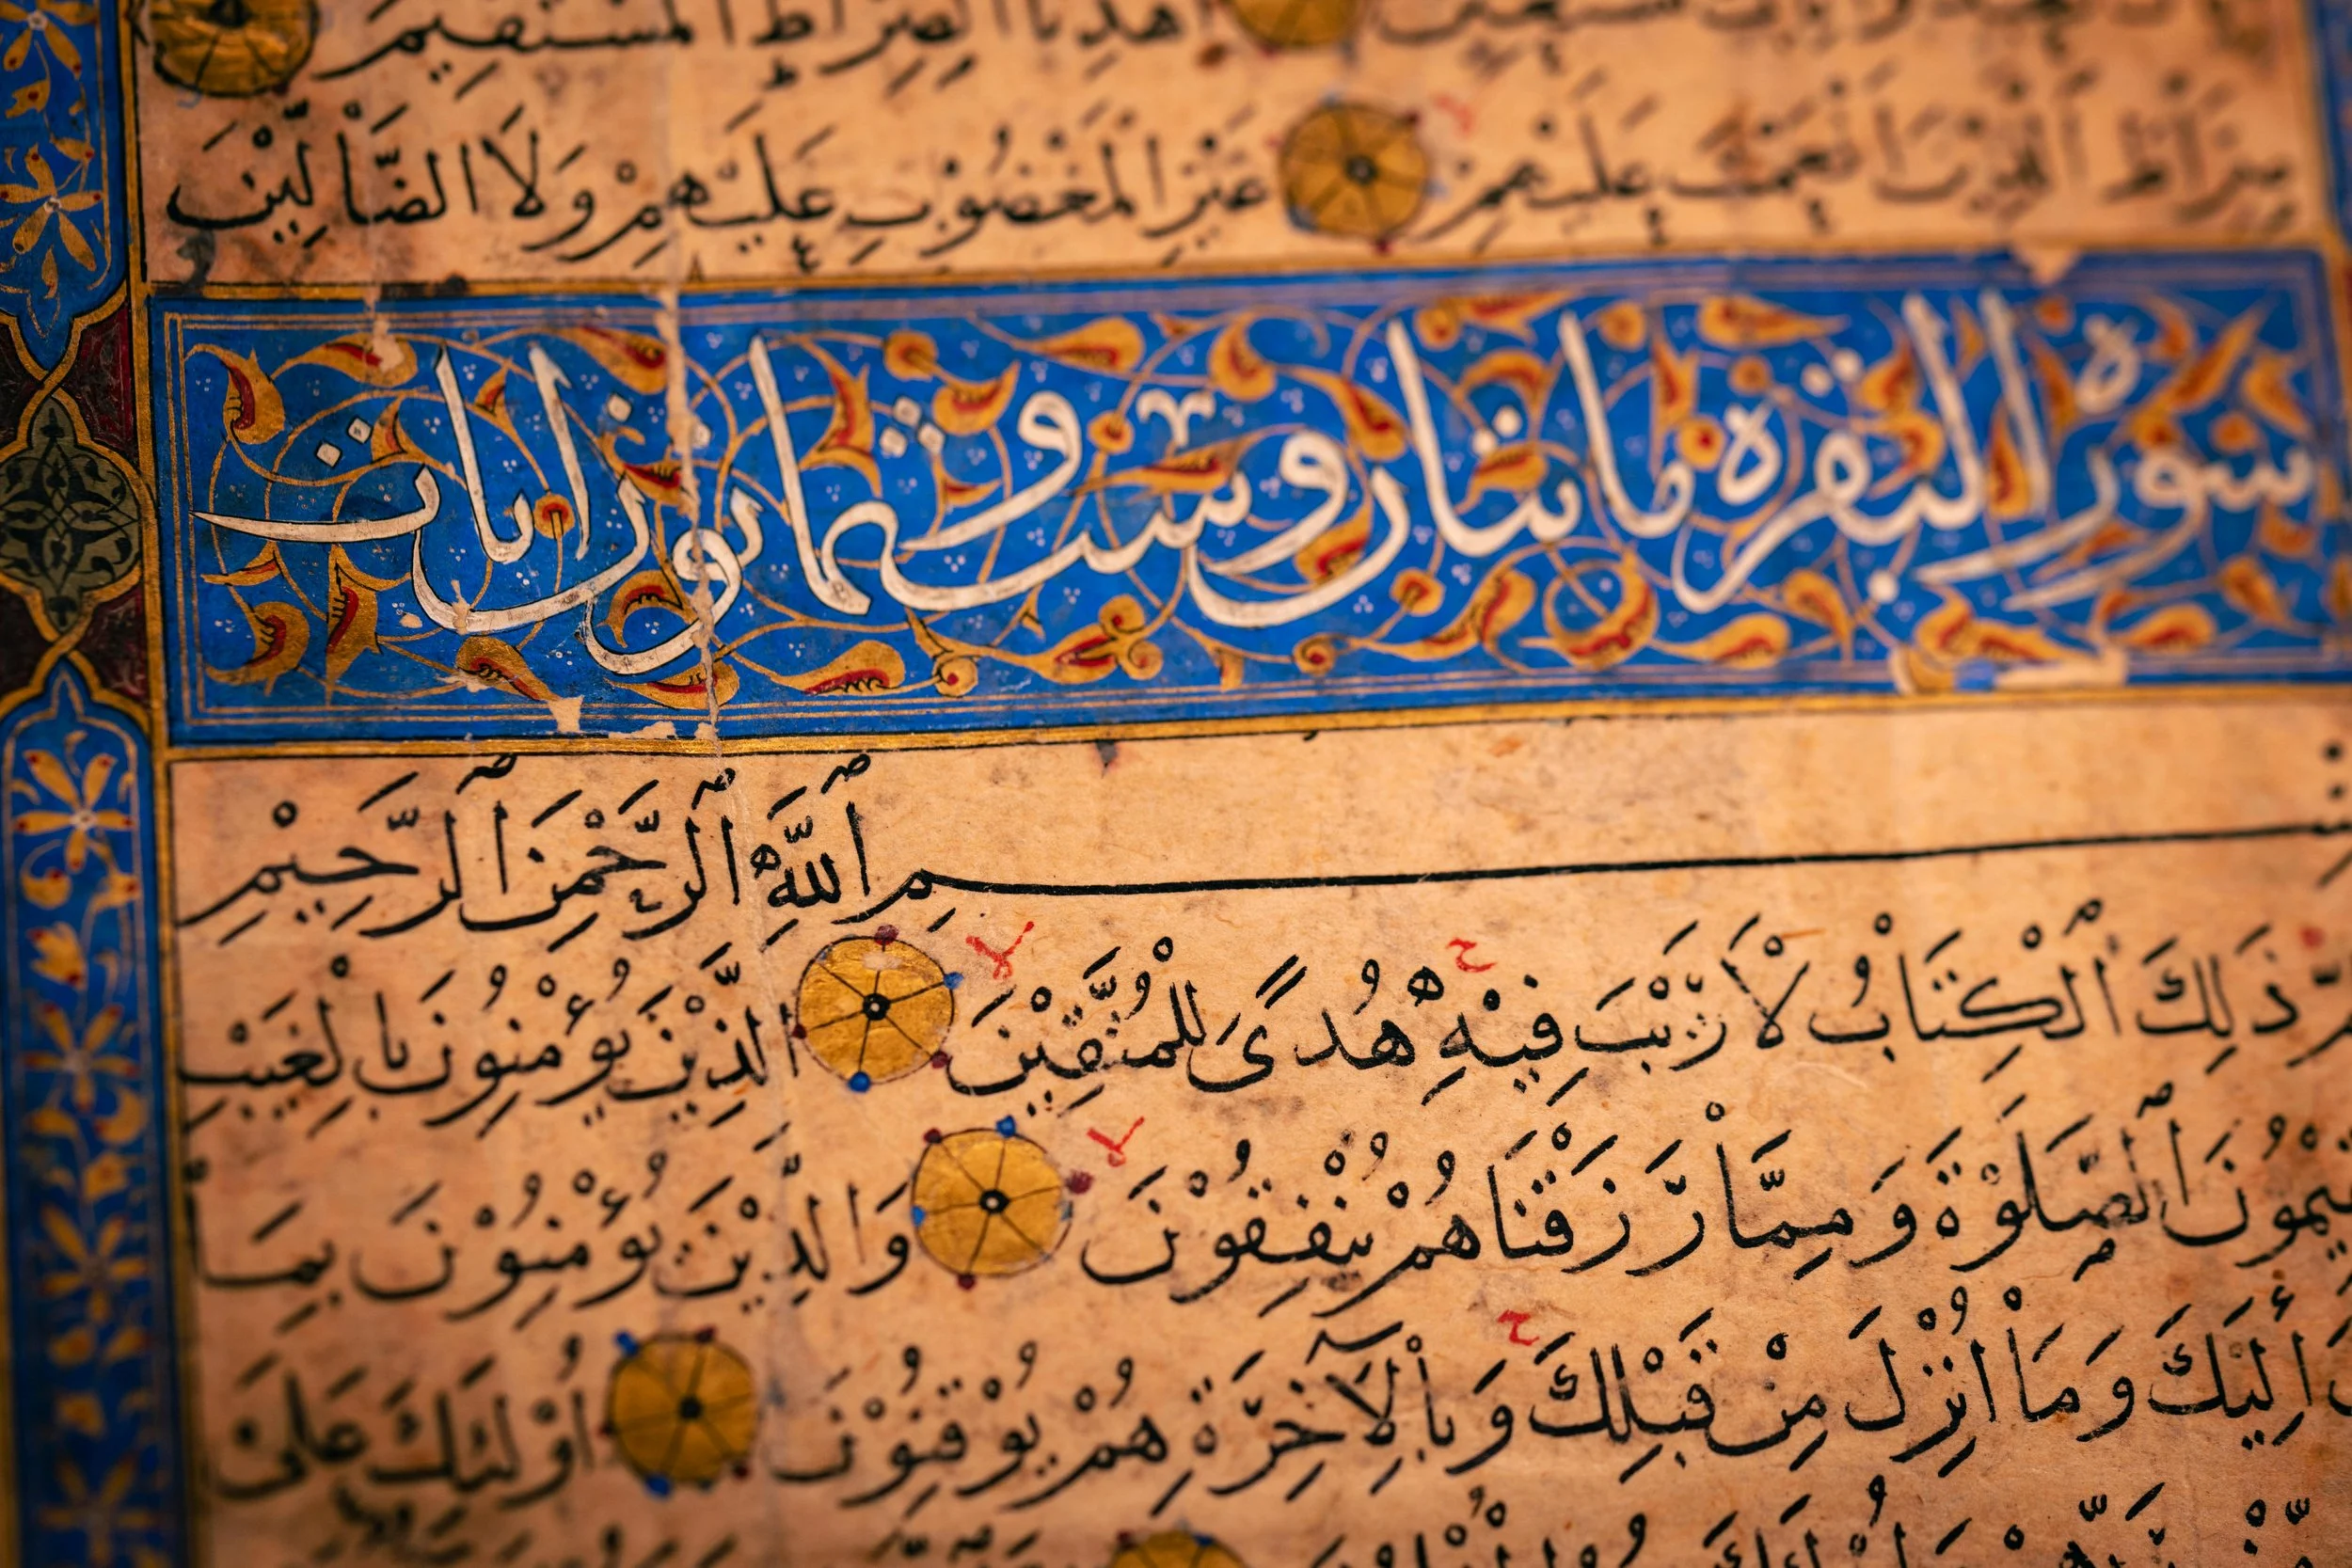 اهْدِنَا الصِّرَاطَ الْمُسْتَقِيمَ
صِرَاطَ الَّذِينَ أَنْعَمْتَ عَلَيْهِمْ غَيْرِ الْمَغْضُوْبِ عَلَيْهِمْ وَلَا الضَّالِّيْنَ
سورة البقره مايتان وست وثمانون ايات
بِسْمِ ٱللَّهِ ٱلرَّحْمٰنِ ٱلرَّحِيمِ
ذَلِكَ ٱلْكِتَابُ لَا رَيْبَ فِيْهِ هُدًى لِلْمُتَّقِيْنَ الَّذِيْنَ يُؤْمِنُونَ بِالْغَيْبِ
ٱلصَّلَوٰةَ وَمِمَّا رَزَقْنَاهُمْ يُنْفِقُوْنَ وَالَّذِيْنَ يُؤْمِنُوْنَ بِمَا
إِلَيْكَ وَمَا أُنْزِلَ مِنْ قَبْلِكَ وَبِالْآخِرَةِ هُمْ يُوْقِنُوْنَ أُوْلَئِكَ عَلَى